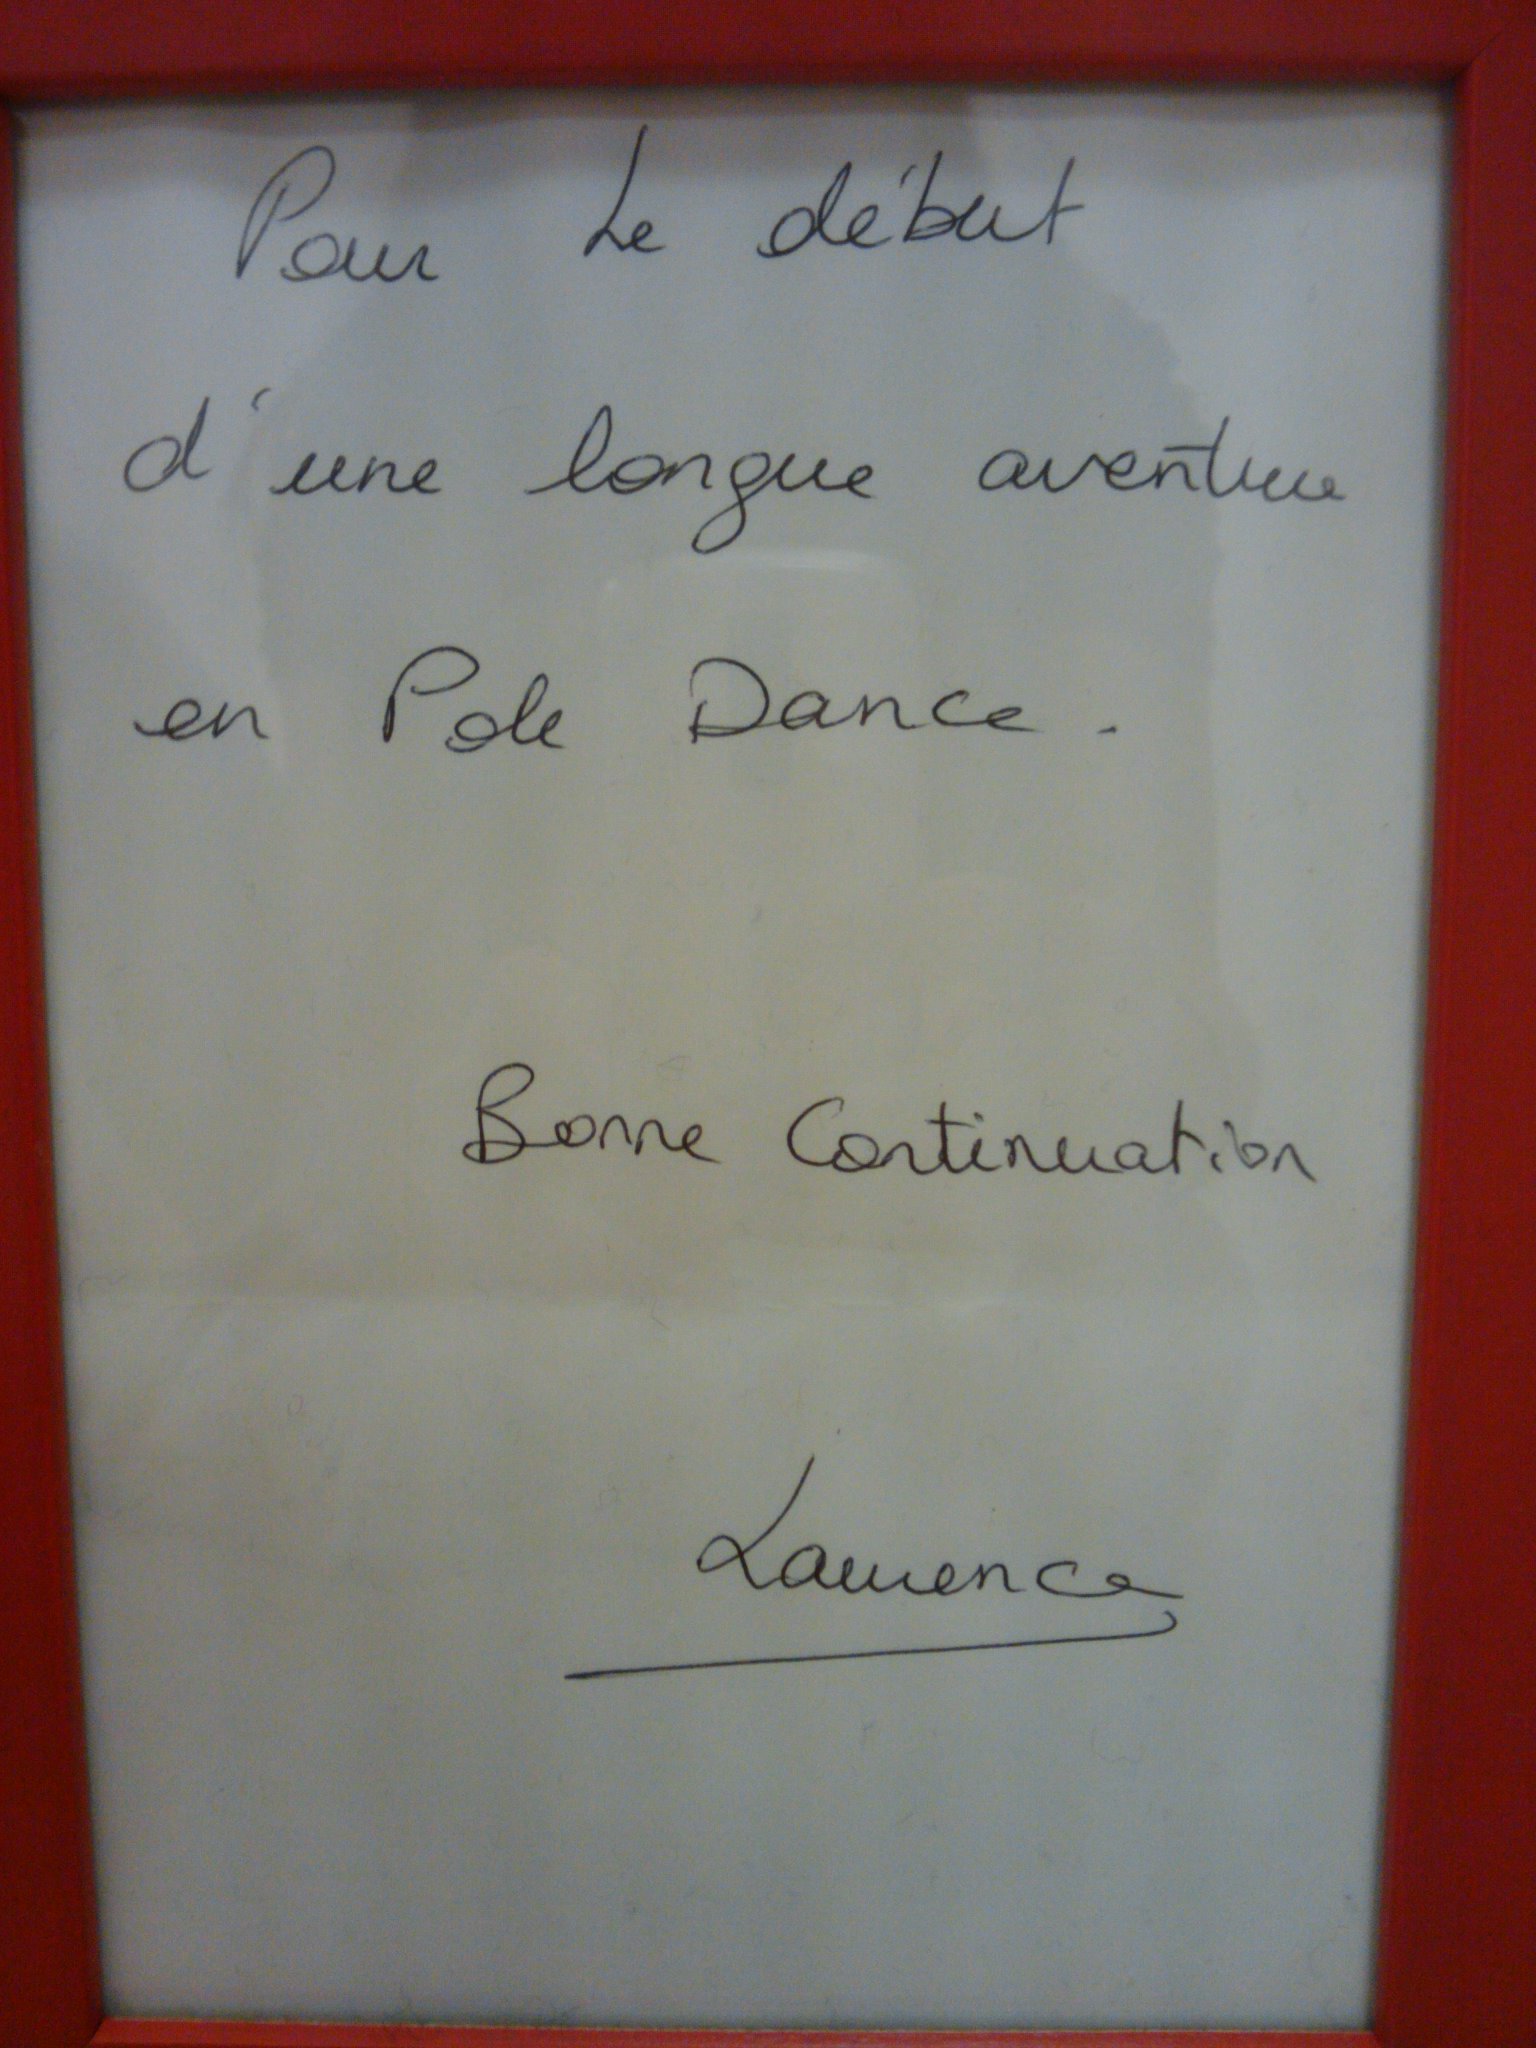 Pour Le début
d'une longue aventure
en Pole Dance.
Bonne Continuation
Laurence